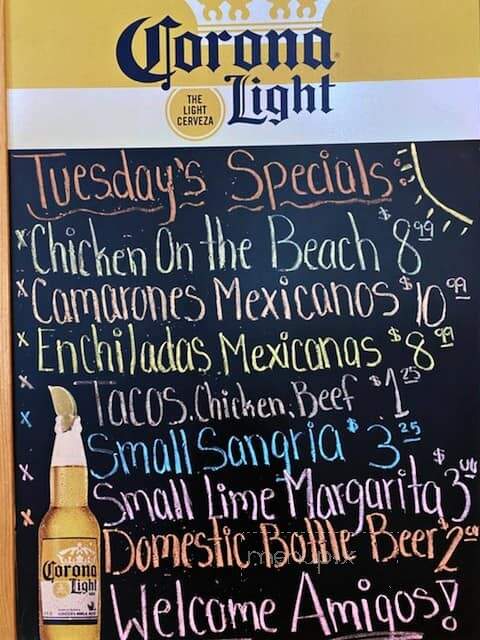 Corona
Light
THE
LIGHT
CERVEZA
Tuesday's Specials
x Chicken On the Beach $8.99
x Camarones Mexicanos $10.99
x Enchiladas Mexicanas $8.99
x Tacos. Chicken, Beef $1.25
x Small Sangria $3.25
x Small Lime Margarita $3.00
x Domestic Bottle Beer $2.00
Welcome Amigos!
Corona
Light